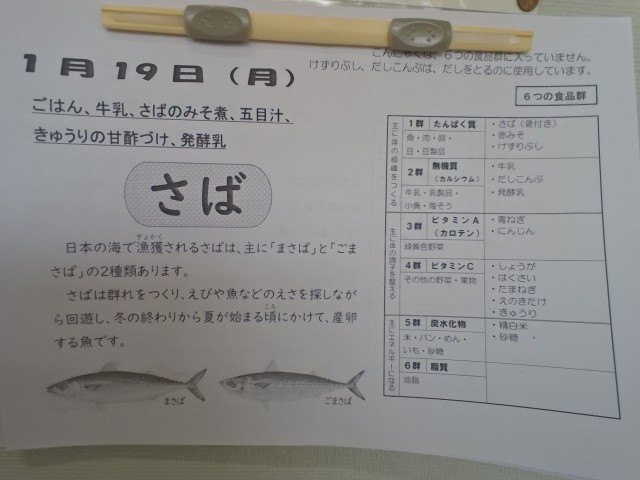 1月19日(月)
ごはん、牛乳、さばのみそ煮、五目汁、
きゅうりの甘酢づけ、発酵乳
さば
日本の海で漁獲されるさばは、主に「まさば」と「ごま
ぎょかく
さば」の2種類あります。
さばは群れをつくり、えびや魚などのえさを探しなが
ら回遊し、冬の終わりから夏が始まる頃にかけて、産卵
ころ
する魚です。
まさば
ごまさば
こんにゃくは、6つの食品群に入っていません。
けずりぶし、だしこんぶは、だしをとるのに使用しています。
6つの食品群
主に体の組織をつくる
1群 たんぱく質
魚・肉・卵・
豆・豆製品
・さば(骨付き)
・赤みそ
・けずりぶし
2群 無機質
(カルシウム)
牛乳・乳製品・
小魚・海そう
・牛乳
・だしこんぶ
・発酵乳
主に体の調子を整える
3群 ビタミンA
(カロテン)
緑黄色野菜
・青ねぎ
・にんじん
4群 ビタミンC
その他の野菜・果物
・しょうが
・はくさい
・たまねぎ
・えのきたけ
・きゅうり
主にエネルギーになる
5群 炭水化物
米・パン・めん・
いも・砂糖
・精白米
・砂糖
6群 脂質
油脂